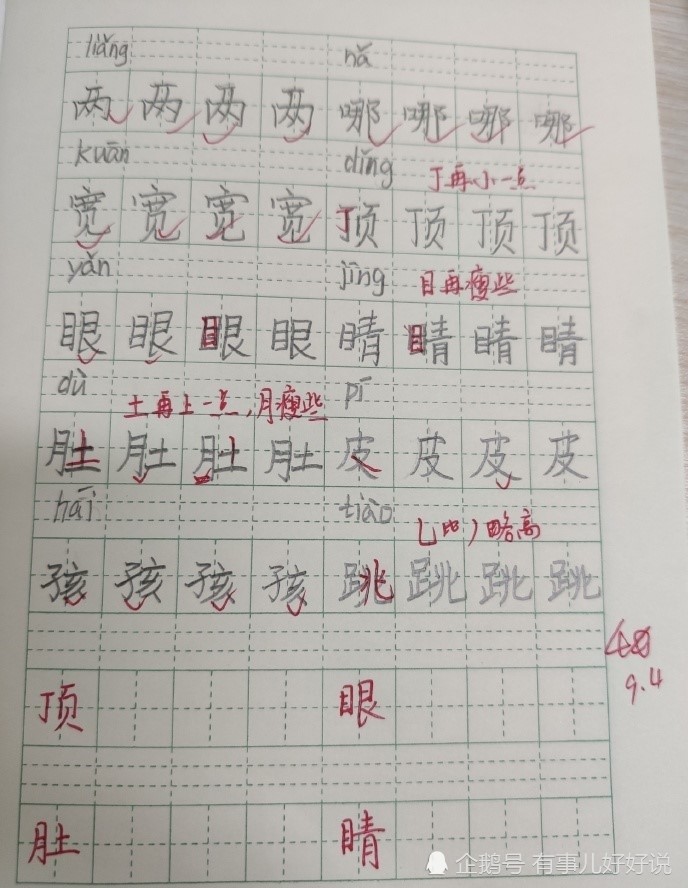 liǎng nǎ
两 两 两 两 哪 哪 哪 哪
kuān dǐng 丁再小一点
宽 宽 宽 宽 顶 顶 顶 顶
yǎn jīng 目再瘦些
眼 眼 眼 眼 睛 睛 睛 睛
dù 土再上一点,月瘦些 pí
肚 肚 肚 肚 皮 皮 皮 皮
hái tiào 乚比丿略高
孩 孩 孩 孩 跳 跳 跳 跳
9.4
顶 眼
肚 睛
企鹅号 有事儿好好说